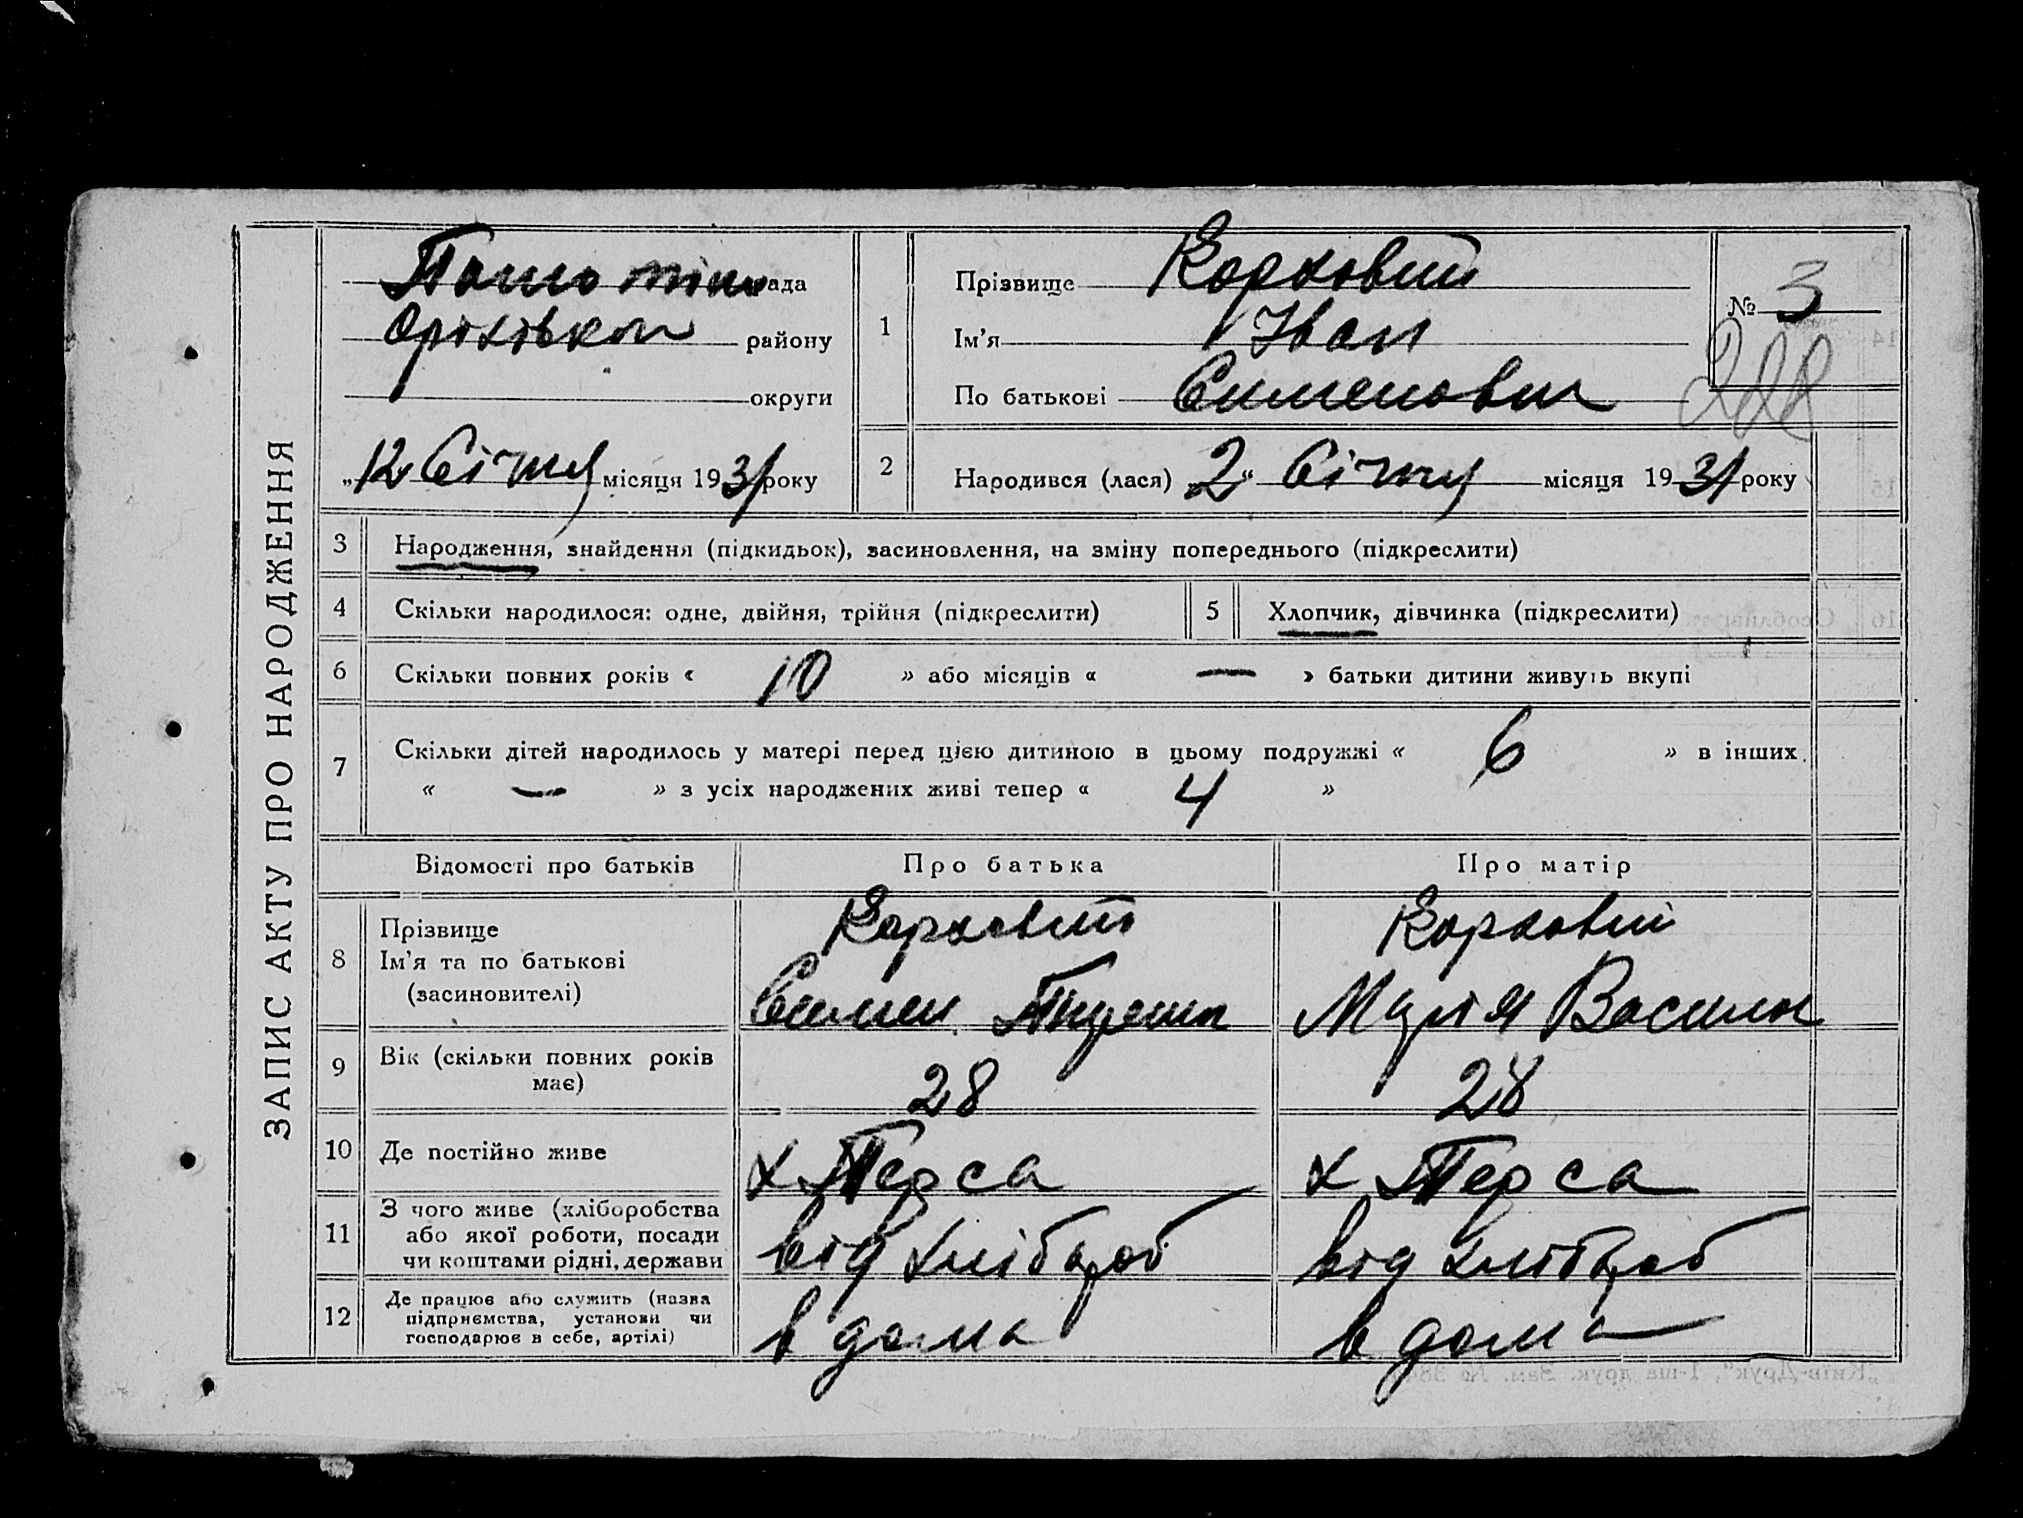 ЗАПИС АКТУ ПРО НАРОДЖЕННЯ
рада
Оріхівкои району
округи
„12 Січня місяця 1931 року
1
Прізвище Корховий
Ім'я Іван
По батькові Сименович
№ 3
288
2
Народився (лася) „2“ Січня місяця 1931 року
3 Народження, знайдення (підкидьок), засиновлення, на зміну попереднього (підкреслити)
4 Скільки народилося: одне, двійня, трійня (підкреслити)
5 Хлопчик, дівчинка (підкреслити)
6 Скільки повних років « 10 » або місяців « — » батьки дитини живуть вкупі
7 Скільки дітей народилось у матері перед цією дитиною в цьому подружжі « 6 » в інших
« — » з усіх народжених живі тепер « 4 »
Відомості про батьків Про батька Про матір
8 Прізвище Корховий Корховий
Ім'я та по батькові
(засиновителі) Симен Марія Васили
9 Вік (скільки повних років має) 28 28
10 Де постійно живе х Терса х Терса
11 З чого живе (хліборобства
або якої роботи, посади
чи коштами рідні, держави від хлібороб від хлібороб
12 Де працює або служить (назва
підприємства, установи чи
господарює в себе, артілі) в дома в дома
„Київ-Друк“, 1-ша друк. Зам. №